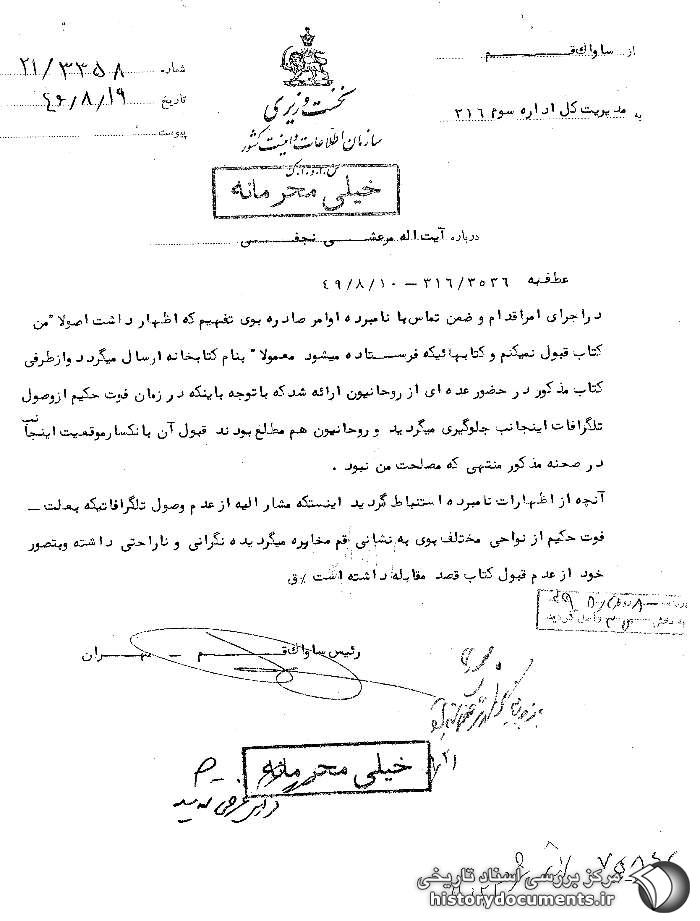 از ساواک قم
به مدیریت کل اداره سوم ۳۱۶
نخست وزیری
سازمان اطلاعات و امنیت کشور
س.ا.و.ا.ک
شماره ۲۱/۳۳۵۸
تاریخ ۴۹/۸/۱۹
پیوست
خیلی محرمانه
درباره آیت اله مرعشی نجفی
عطف به ۳۱۶/۳۵۳۶ – ۴۹/۸/۱۰
در اجرای امر اقدام و ضمن تماس با نامبرده اوامر صادره بوی تفهیم که اظهار داشت اصولا" من
کتاب قبول نمیکنم و کتابهائیکه فرستاده میشود معمولا" بنام کتابخانه ارسال میگردد و از طرفی
کتاب مذکور در حضور عده ای از روحانیون ارائه شد که با توجه باینکه در زمان فوت حکیم از وصول
تلگرافات اینجانب جلوگیری میگردید و روحانیون هم مطلع بودند قبول آن بانکسار موقعیت اینجانب
در صحنه مذکور منتهی که مصلحت من نبود .
آنچه از اظهارات نامبرده استنباط گردید اینستکه مشار الیه از عدم وصول تلگرافاتیکه بعلت –
فوت حکیم از نواحی مختلف بوی به نشانی قم مخابره میگردیده نگرانی و ناراحتی داشته و بتصور
خود از عدم قبول کتاب قصد مقابله داشته است ٪ ق
رئیس ساواک قم – مهران
خیلی محرمانه
مرکز بررسی اسناد تاریخی
historydocuments.ir